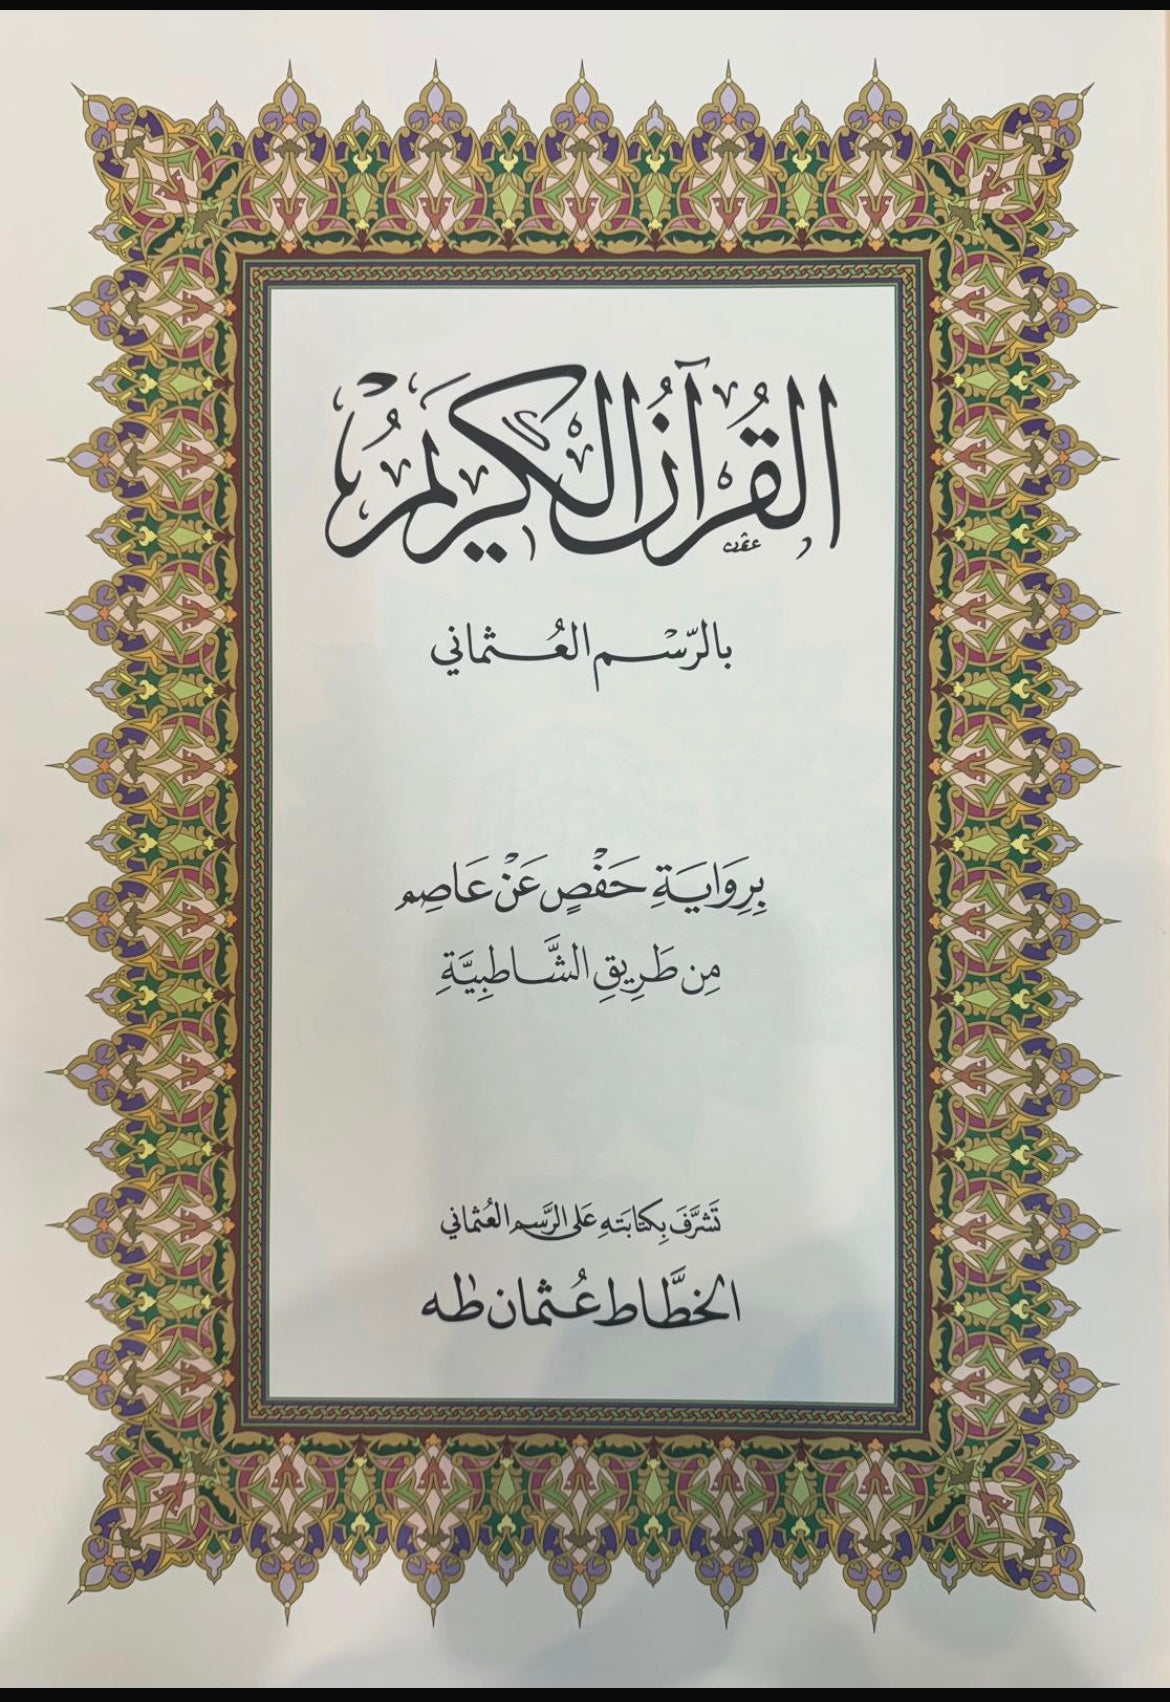 القُرْآنُ الْكَرِيمُ
عثمان
بالرّسْم العُثماني
بِرِوَايَةِ حَفْصٍ عَنْ عَاصِم
مِن طَرِيقِ الشَّاطِبِيَّةِ
تَشرَّفَ بِكتابَتهِ عَلى الرَّسم العُثماني
الخطَّاط عُثمان طٰه